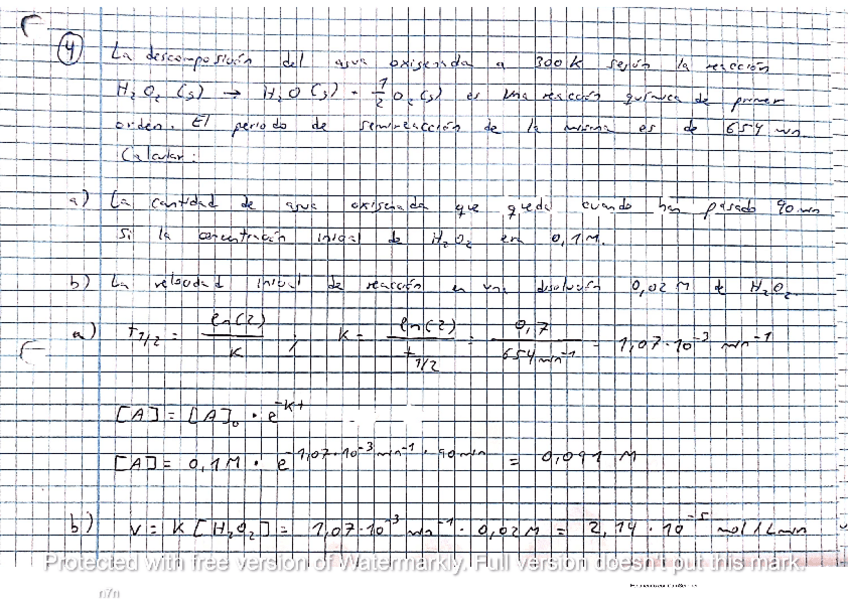 4 La descomposición del agua oxigenada a 300 K según la reacción
H₂O₂ (g) → H₂O (g) + 1/2 O₂ (g) es una reacción química de primer
orden. El periodo de semireacción de la misma es de 654 min.
Calcular:
a) La cantidad de agua oxigenada que queda cuando han pasado 90 min
si la concentración inicial de H₂O₂ era 0,1 M.
b) La velocidad inicial de reacción en una disolución 0,02 M de H₂O₂.
a) t1/2 = ln(2)/K ; K = ln(2)/t1/2 = 0,7/654 min⁻¹ = 1,07·10⁻³ min⁻¹
[A] = [A]₀ · e^-Kt
[A] = 0,1 M · e^-1,07·10⁻³ min⁻¹ · 90 min = 0,091 M
b) v = K [H₂O₂] = 1,07·10⁻³ min⁻¹ · 0,02 M = 2,14 · 10⁻⁵ mol / L min
Protected with free version of Watermarkly. Full version doesn't put this mark.